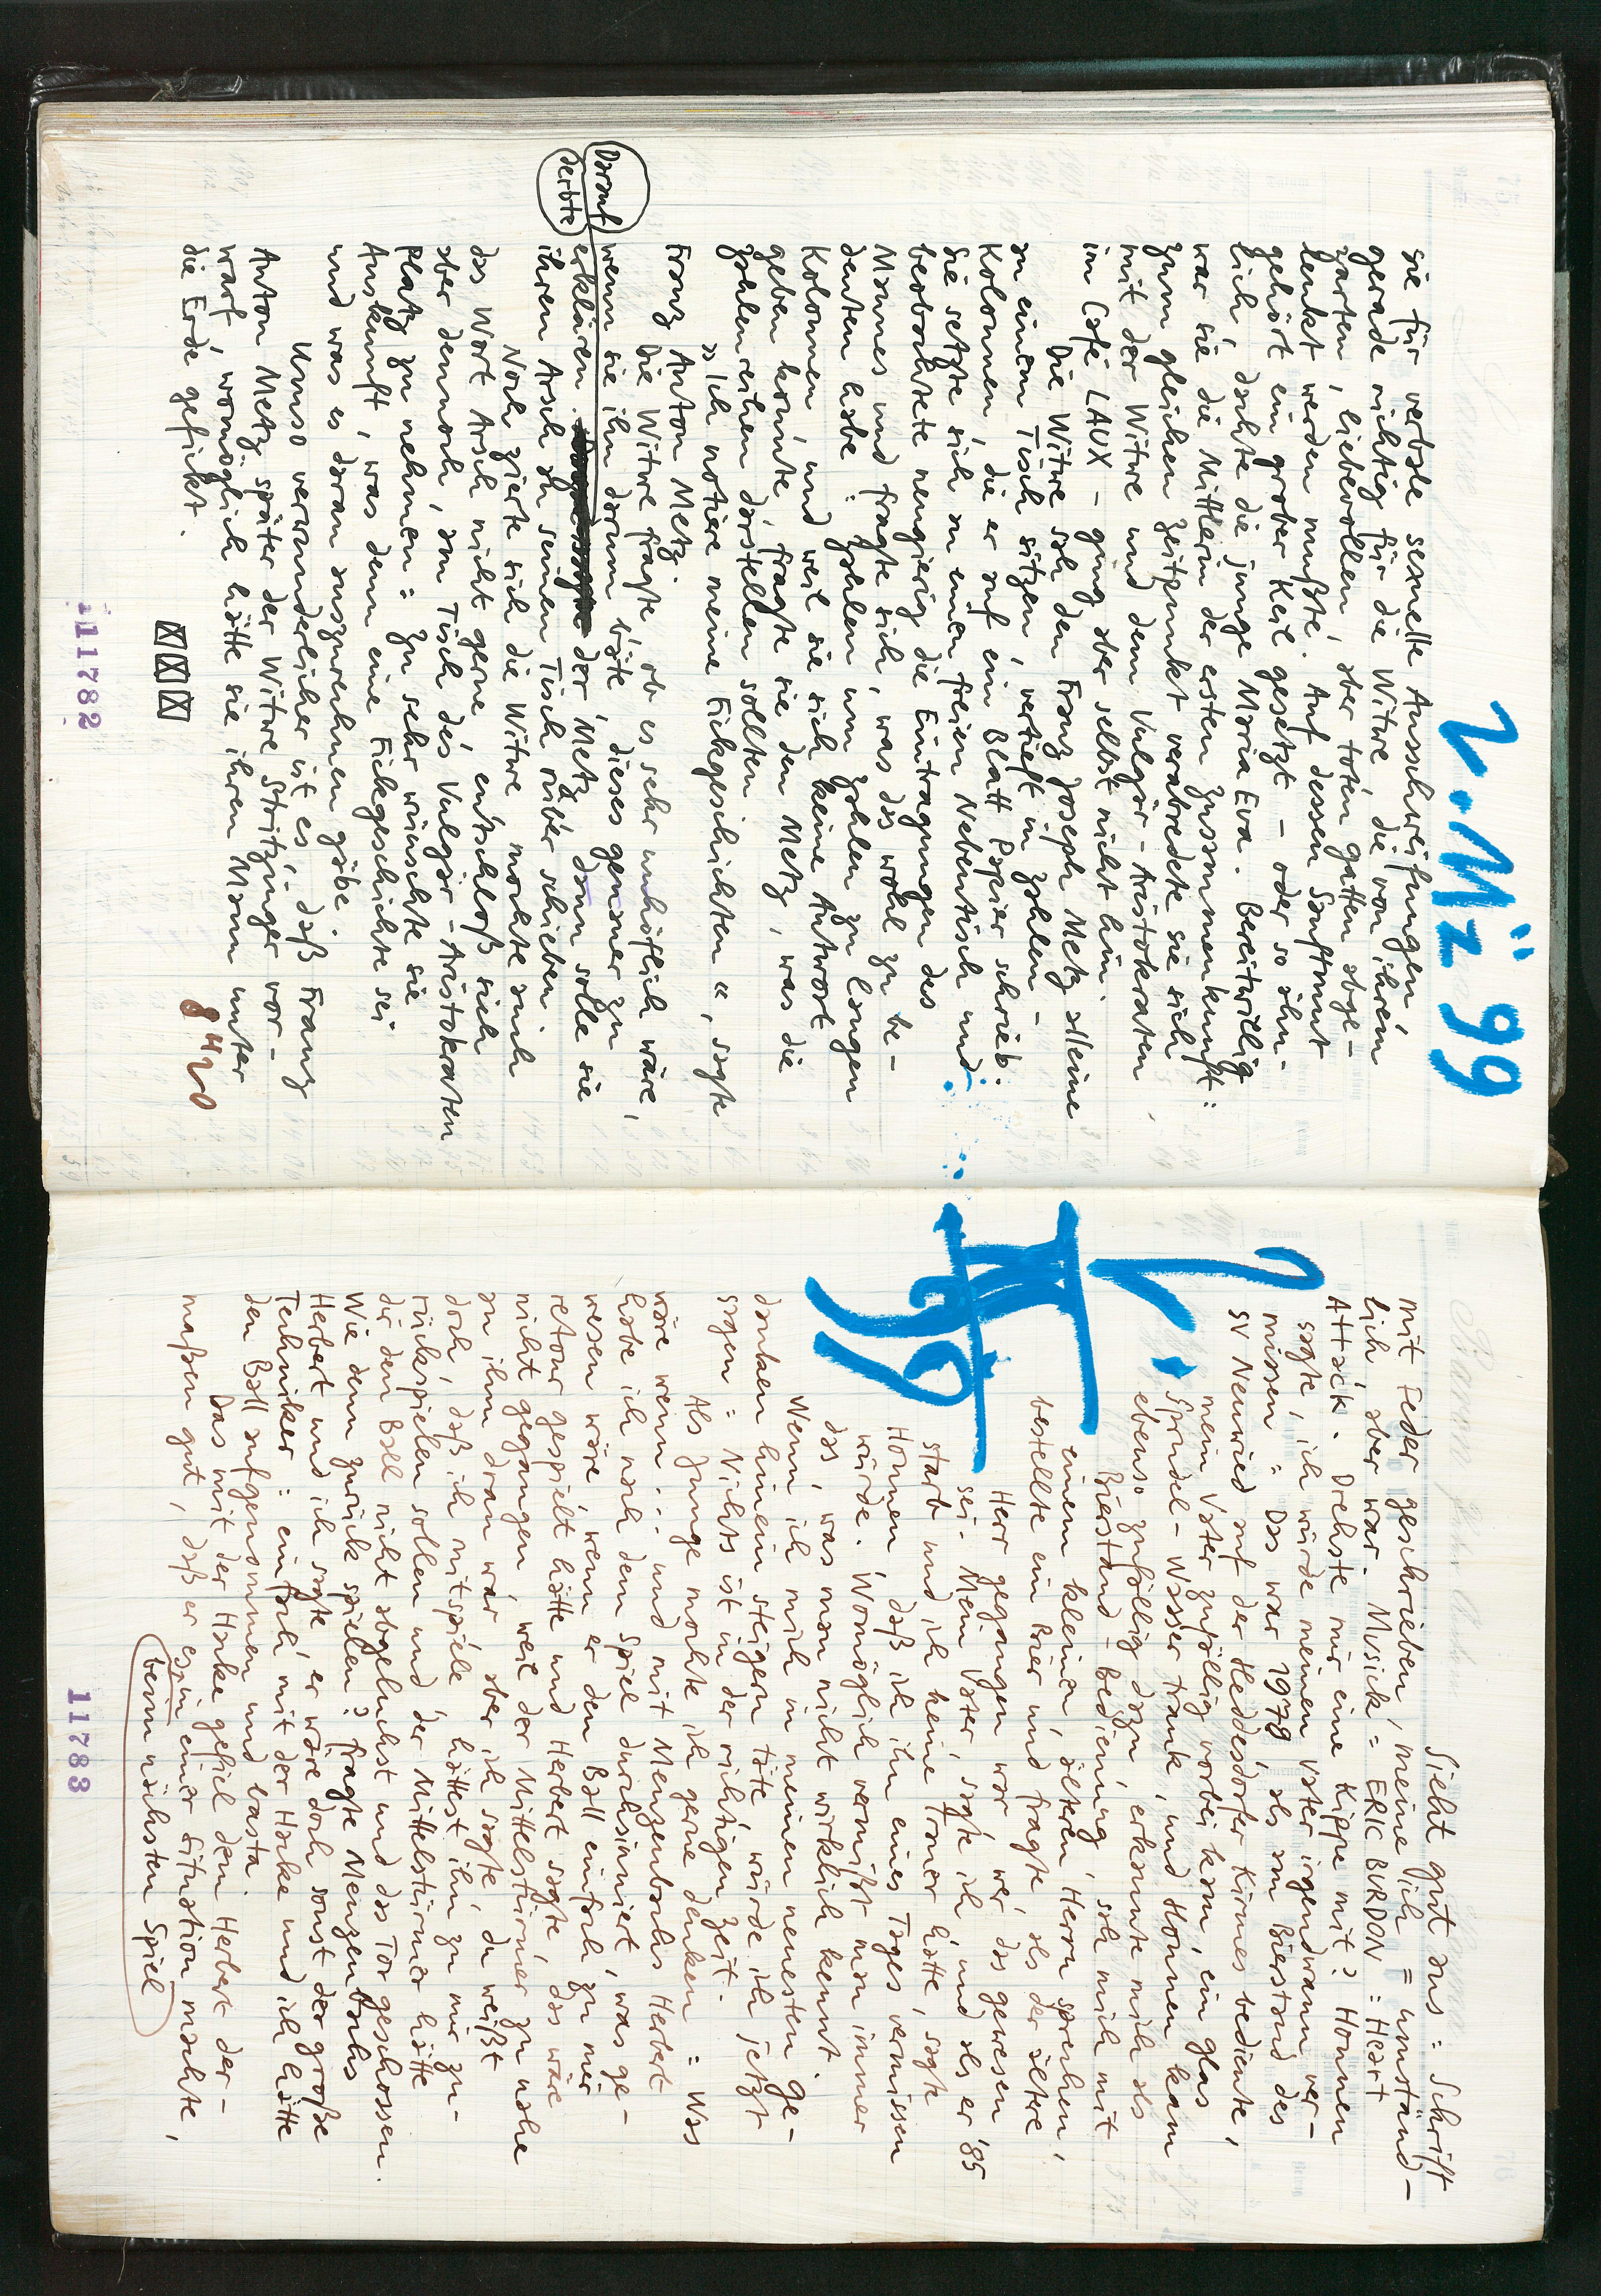 2. Mz 99
sie für verbale sexuelle Ausschweifungen,
gerade richtig für die Witwe, die von ihrem
zarten, liebevollen, aber toten Gatten abge-
lenkt werden mußte. Auf dessen Sanftmut
gehört ein grober Keil gesetzt – oder so ähn-
lich, dachte die junge Maria Eva. Bereitwillig
war sie die Mittlerin der ersten Zusammenkunft:
zum gleichen Zeitpunkt verabredete sie sich
mit der Witwe und dem Vulgär-Aristokraten,
im Café LAUX – ging aber selbst nicht hin.
Die Witwe sah den Franz Joseph Metz alleine
an einem Tisch sitzen, vertieft in Zahlen –
Kolonnen, die er auf ein Blatt Papier schrieb.
Sie setzte sich an einen freien Nebentisch und
beobachtete neugierig die Eintragungen des
Mannes und fragte sich, was das wohl zu be-
deuten habe: Zahlen um Zahlen zu langen
Kolonnen, und weil sie sich keine Antwort
geben konnte, fragte sie den Metz, was die
Zahlenreihen darstellen sollten.
»Ich notiere meine Fickgeschichten«, sagte
Franz Anton Metz.
Die Witwe fragte, ob es sehr unhöflich wäre,
wenn sie ihn darum bäte, dieses genauer zu
Darauf
erklären. der Metz, dann solle sie
derbte
ihren Arsch an seinen Tisch rüber schieben.
Noch zierte sich die Witwe, mochte auch
das Wort Arsch nicht gerne, entschloß sich
aber dennoch, am Tisch des Vulgär-Aristokraten
Platz zu nehmen: Zu sehr wünschte sie
Auskunft, was denn eine Fickgeschichte sei
und was es daran auszurechnen gäbe.
Umso verwunderlicher ist es, daß Franz
Anton Metz später der Witwe Stritzinger vor-
warf, womöglich hätte sie ihren Mann unter
die Erde gefickt.
8 H 20
11782
2. III 99
Sieht gut aus: Schrift
mit Feder geschrieben, meine ich = umständ-
lich, aber war. Musick = ERIC BURDON: Heart
Attack. Drehste mir eine Kippe mit? Honnen
sagte, ich würde meinen Vater irgendwann ver-
missen: Das war 1978, als am Bierstand des
SV Neuwied auf der Heddesdorfer Kirmes bediente,
mein Vater zufällig vorbei kam, ein Glas
Sprudel-Wasser trank, und Honnen kam
ebenso zufällig dazu, erkannte mich als
Bierstand-Bedienung, sah mich mit
einem kleinen, älteren Herrn sprechen,
bestellte ein Bier und fragte, als der ältere
Herr gegangen war, wer das gewesen
sei. Mein Vater, sagte ich, und als er '85
starb und ich keine Trauer hätte, sagte
Honnen, daß ich ihn eines Tages vermissen
würde. Womöglich vermißt man immer
das, was man nicht wirklich kennt.
Wenn ich mich in meinen neuesten Ge-
danken hinein steigern täte, würde ich jetzt
sagen: Nichts ist in der richtigen Zeit.
Als Junge mochte ich gerne denken: Was
wäre wenn... und mit Menzenbachs Herbert
habe ich nach dem Spiel durchsinniert, was ge-
wesen wäre, wenn er den Ball einfach zu mir
retour gespielt hätte und Herbert sagte, das wäre
nicht gegangen, weil der Mittelstürmer zu nahe
an ihm dran war, aber ich sagte, du weißt
doch, daß ich mitspiele, hättest ihn zu mir zu-
rückspielen sollen und der Mittelstürmer hätte
dir den Ball nicht abgeluchst und das Tor geschossen.
Wie denn zurück spielen? fragte Menzenbachs
Herbert und ich sagte, er wäre doch sonst der große
Techniker: einfach mit der Hacke und ich hätte
den Ball aufgenommen und basta.
Das mit der Hacke gefiel dem Herbert der-
maßen gut, daß er es in einer Situation machte,
beim nächsten Spiel
11783